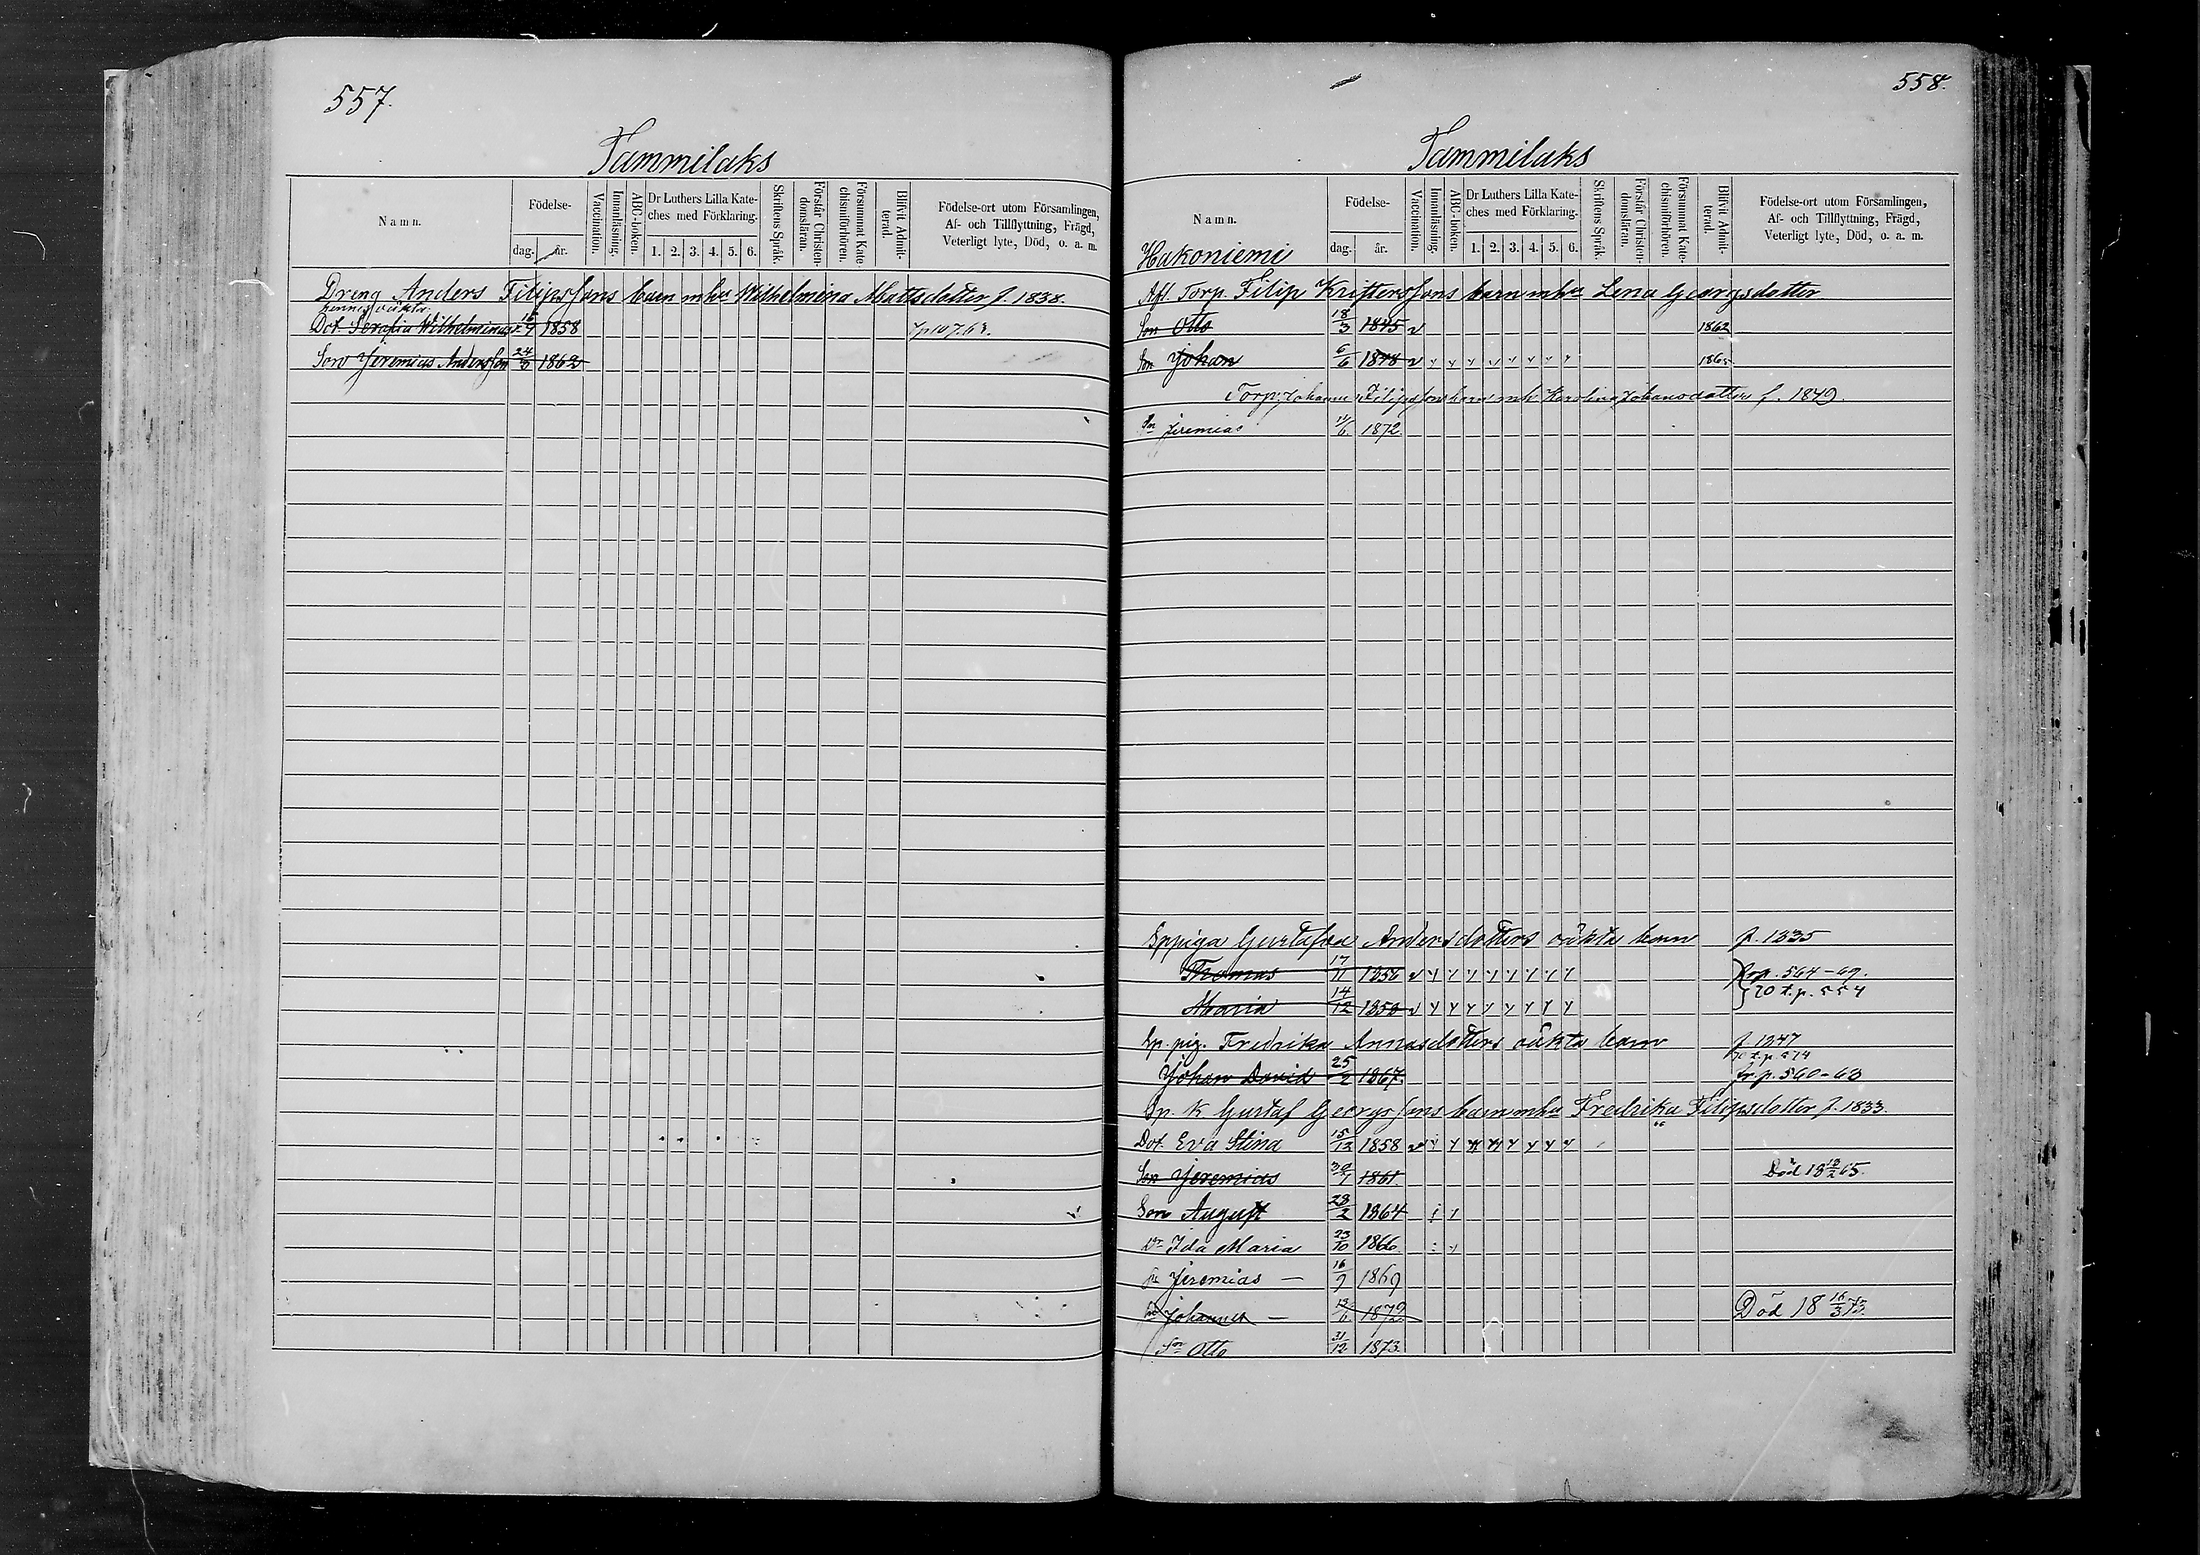 557.
Tammilaks
Namn.
Födelse-
dag. år.
Vaccination.
Innanläsning.
ABC-boken.
Dr Luthers Lilla Kate-
ches med Förklaring.
1. 2. 3. 4. 5. 6.
Skriftens Språk.
Förstår Christen-
domsläran.
Försummat Kate-
chismiförhören.
Blifvit Admit-
terad.
Födelse-ort utom Församlingen,
Af- och Tillflyttning, Frägd,
Veterligt lyte, Död, o. a. m.
Dreng Anders Filipssons barn mhu Wilhelmina Mattsdotter f. 1838.
hennes oäkta
Dot. Serafia Wilhelmina 1858
Son Jeremias Andersson 24/3 1862
558.
Tammilaks
Namn.
Födelse-
dag. år.
Vaccination.
Innanläsning.
ABC-boken.
Dr Luthers Lilla Kate-
ches med Förklaring.
1. 2. 3. 4. 5. 6.
Skriftens Språk.
Förstår Christen-
domsläran.
Försummat Kate-
chismiförhören.
Blifvit Admit-
terad.
Födelse-ort utom Församlingen,
Af- och Tillflyttning, Frägd,
Veterligt lyte, Död, o. a. m.
Hukoniemi
Afl. Torp. Filip Kristerssons barn mhu Lena Georgsdotter
Son Otto 18/3 1845 v 1862
Son Johan 6/6 1848 v 1865
Torp. Johan Filipssons barn mh Karolina Johansdotter f. 1849.
Sn Jeremias 1872
Gustafva Andersdotters oäkta barn f. 1835
Thomas 17/11 1856 v p. 564-69.
Maria 14/12 1850 v 70 t.p. 554
Fredrika Annasdotters oäkta barn f 1847
70 t.p. 574
Johan David 25/2 1867 fr p. 560-68
Sp. K Gustaf Georgssons barn mhu Fredrika Filipsdotter f. 1833.
Dot. Eva Stina 15/12 1858 v
Son Jeremias 30/7 1861. Död 18 65.
Son August 28/2 1864
Dr Ida Maria 23/10 1866
Sn Jeremias — 16/9 1869
Sn Johannes — 1872 Död 18 16/3 73.
Sn Otto 31/12 1873